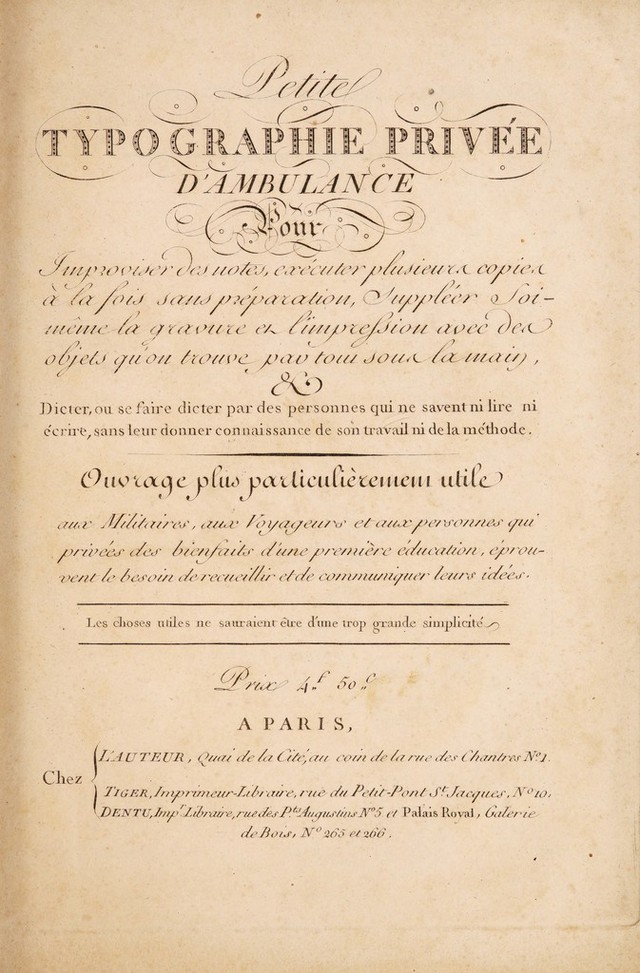 Petite
TYPOGRAPHIE PRIVÉE
D'AMBULANCE
Pour
Improviser des notes, exécuter plusieurs copies
à la fois sans préparation, Suppléer Soi-
même la gravure et l'impression avec des
objets qu'on trouve par tout sous la main,
&
Dicter, ou se faire dicter par des personnes qui ne savent ni lire ni
écrire, sans leur donner connaissance de son travail ni de la méthode.
Ouvrage plus particulièrement utile
aux Militaires, aux Voyageurs et aux personnes qui
privées des bienfaits d'une première éducation, éprou-
vent le besoin de recueillir et de communiquer leurs idées.
Les choses utiles ne sauraient être d'une trop grande simplicité
Prix 4.f 50.c
A PARIS,
Chez
L'AUTEUR, Quai de la Cité, au coin de la rue des Chantres No 1.
TIGER, Imprimeur-Libraire, rue du Petit-Pont St. Jacques, No 10,
DENTU, Impr. Libraire, rue des P.ts Augustins No 5 et Palais Royal, Galerie
de Bois, No 265 et 266.